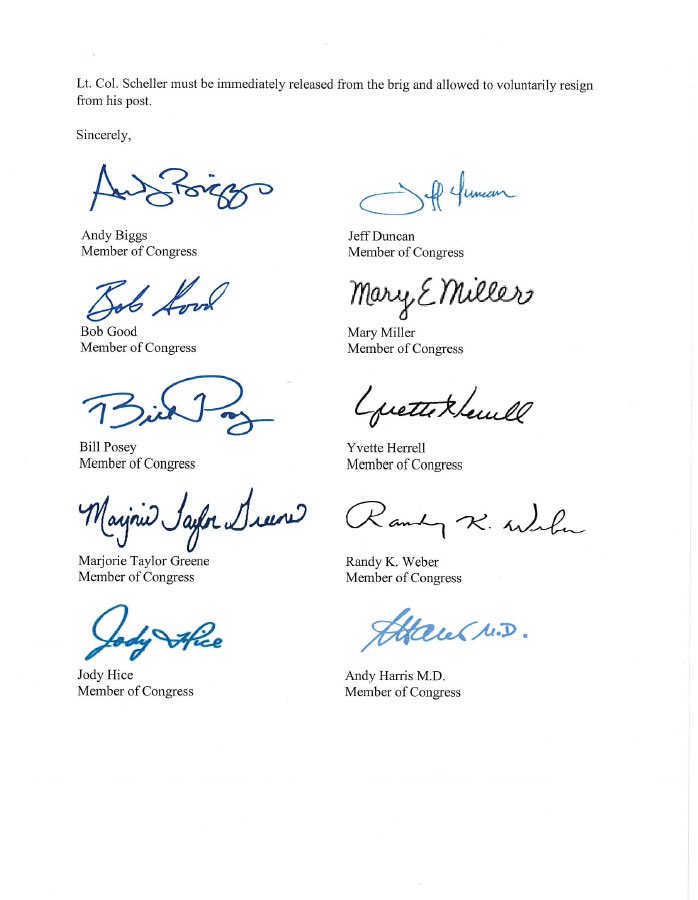 Lt. Col. Scheller must be immediately released from the brig and allowed to voluntarily resign
from his post.
Sincerely,
Andy Biggs
Jeff Duncan
Andy Biggs
Member of Congress
Jeff Duncan
Member of Congress
Bob Good
Mary E Miller
Bob Good
Member of Congress
Mary Miller
Member of Congress
Bill Posey
Yvette Herrell
Bill Posey
Member of Congress
Yvette Herrell
Member of Congress
Marjorie Taylor Greene
Randy K. Weber
Marjorie Taylor Greene
Member of Congress
Randy K. Weber
Member of Congress
Jody Hice
AHarris M.D.
Jody Hice
Member of Congress
Andy Harris M.D.
Member of Congress